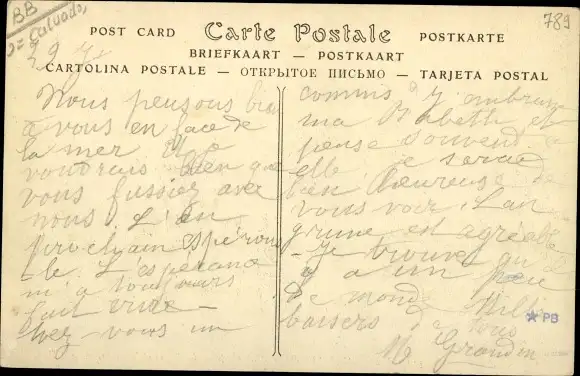 BB
Calvados
789
POST CARD Carte Postale POSTKARTE
BRIEFKAART — POSTKAART
CARTOLINA POSTALE — ОТКРЫТОЕ ПИСЬМО — TARJETA POSTAL
Nous pensons bien
à vous en face de
la mer
voudrais bien que
vous fussiez avec
nous L'an
prochain espérons
-le L'espérance
m'a toujours
fait vivre —
vous un
commis d'y
ma Babeth et
pense souvent à
elle je serai
bien heureuse de
vous voir Lan
grune est agréable
Je trouve qu'il
y a un peu
de monde Mille
baisers à tous
M Grandin
PB